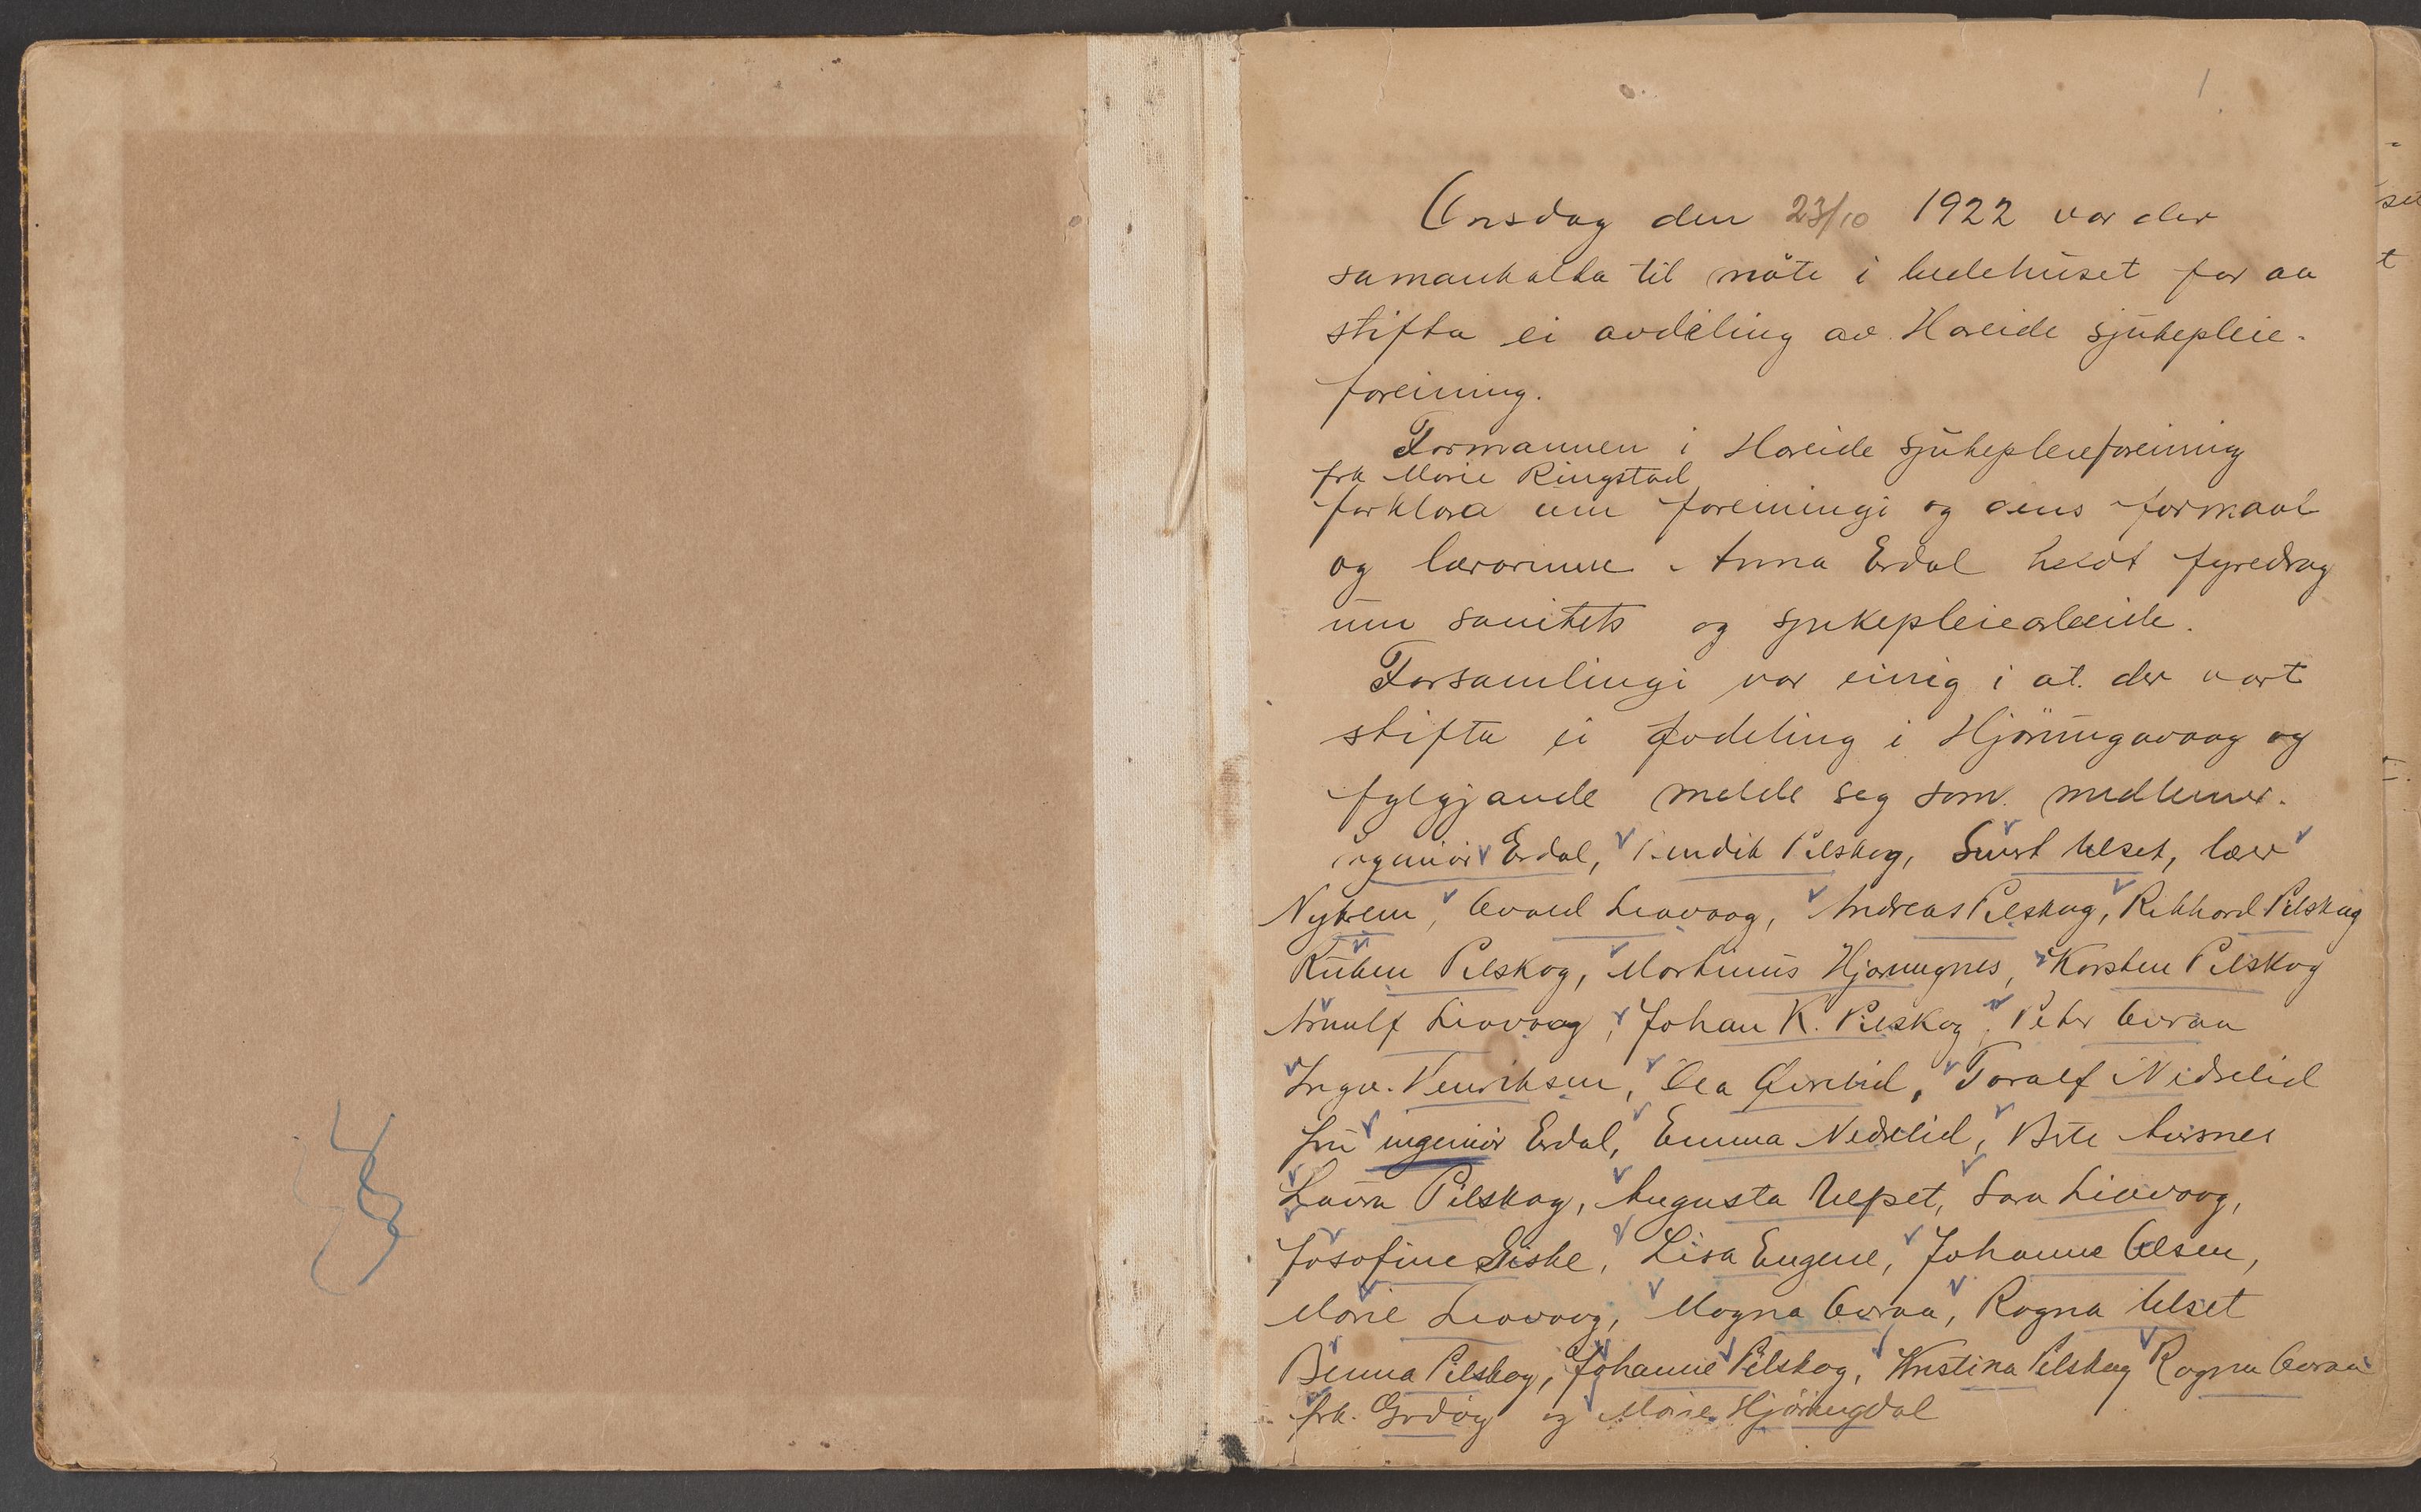 1
Onsdag den 23/10 1922 var der
samankalla til møte i bedehuset for aa
stifta ei avdeling av Hareide sjukepleie-
foreining.
Formannen i Hareide sjukepleieforeining
frk Marie Ringstad
forklara um foreiningi og dens formaal
og lærarinne Anna Erdal heldt fyredrag
um sanitets og sjukepleiearbeide.
Forsamlingi var einig i at der vart
stifta ei avdeling i Hjørungavaag og
fylgjande melde seg som medlemer.
ingeniør Erdal, Bendik Pilskog, Sivert Ulset, lærer
Nytrem, Evald Liavaag, Andreas Pilskog, Rikhard Pilskog
Ruben Pilskog, Martinus Hjørungnes, Karsten Pilskog
Arnulf Liavaag, Johan K. Pilskog, Peter Overaa
Ingv. Henriksen, Ola Overlid, Toralf Nedrelid
fru ingeniør Erdal, Emma Nedrelid, Brte Aursnes
Laura Pilskog, Augusta Ulset, Sara Liavaag,
Josofine Giske, Lisa Eugene, Johanne Olsen,
Marie Liavaag, Magna Overaa, Ragna Ulset
Benna Pilskog, Johanne Pilskog, Kristina Pilskog Ragna Overaa
frk. Godøy og Marie Hjørungdal